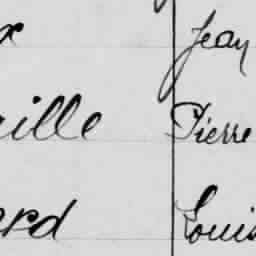 x Jean
ille Pierre
erd Louis